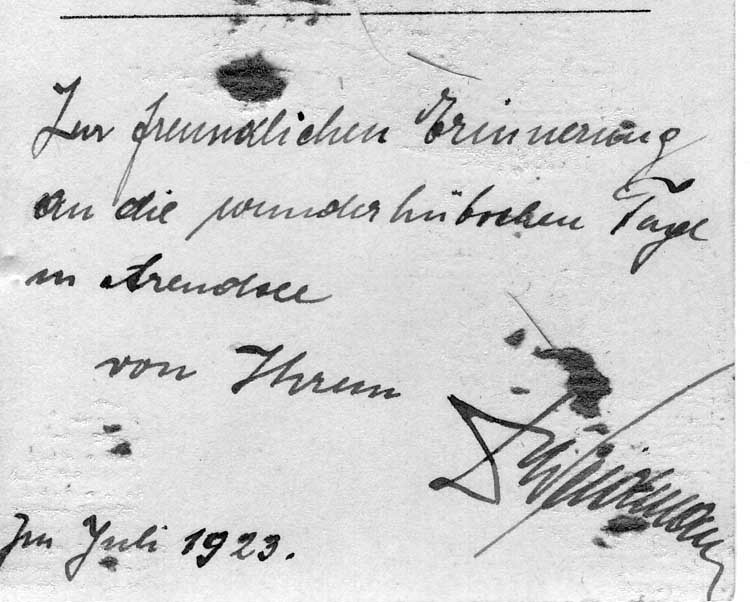 Zur freundlichen Erinnerung
an die wunderhübschen Tage
in Arendsee
von Ihrem
Im Juli 1923.